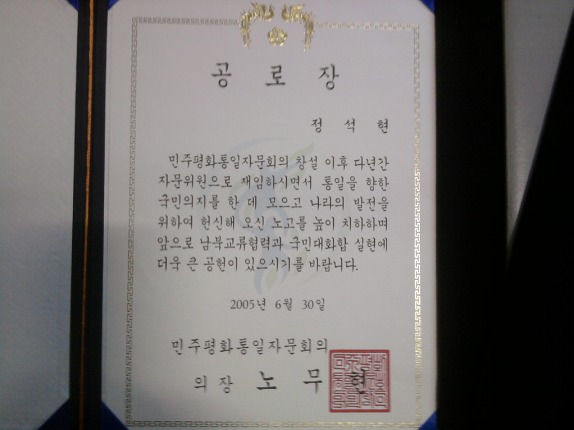 공로장
정석현
민주평화통일자문회의 창설 이후 다년간
자문위원으로 재임하시면서 통일을 향한
국민의지를 한 데 모으고 나라의 발전을
위하여 헌신해 오신 노고를 높이 치하하며
앞으로 남북교류협력과 국민대화합 실현에
더욱 큰 공헌이 있으시기를 바랍니다.
2005년 6월 30일
민주평화통일자문회의
의장 노무현